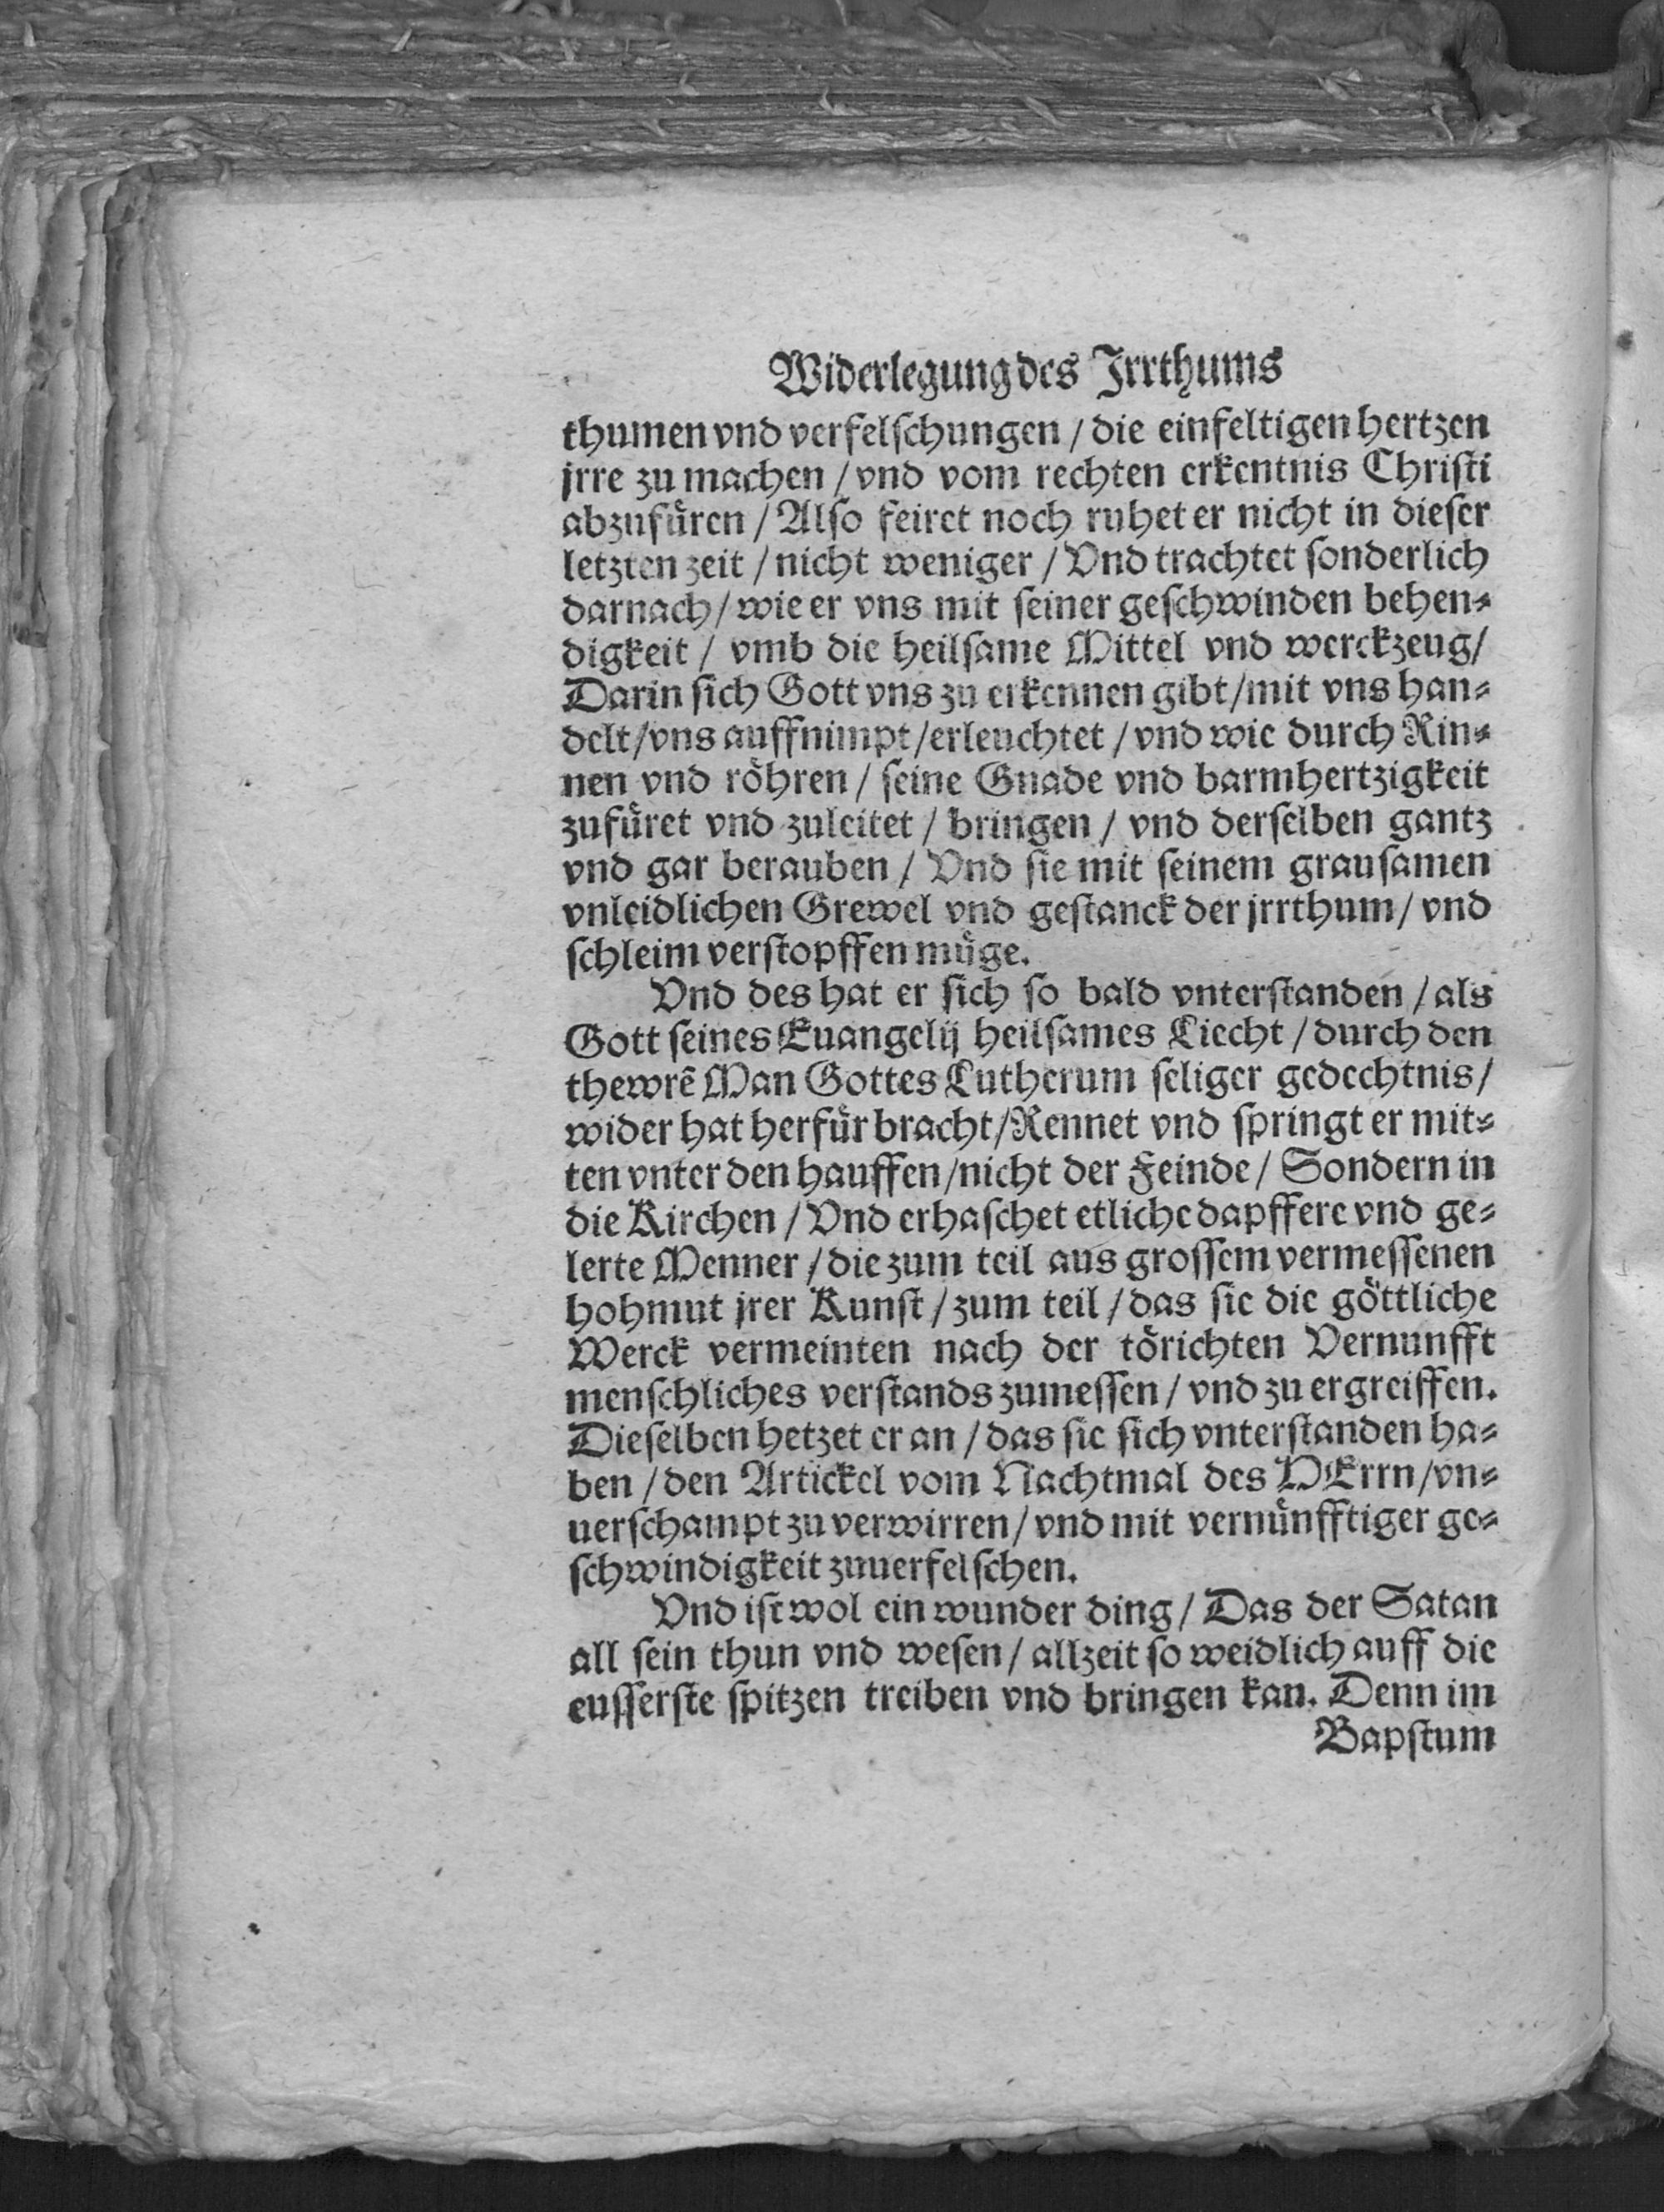 Widerlegung des Jrrthums
thumen vnd verfelſchungen / die einfeltigen hertzen
jrre zu machen / vnd vom rechten erkentnis Chriſti
abzufuͤren / Alſo feiret noch ruhet er nicht in dieſer
letzten zeit / nicht weniger / Vnd trachtet ſonderlich
darnach / wie er vns mit ſeiner geſchwinden behen⸗
digkeit / vmb die heilſame Mittel vnd werckzeug /
Darin ſich Gott vns zu erkennen gibt / mit vns han⸗
delt / vns auffnimpt / erleuchtet / vnd wie durch Rin⸗
nen vnd roͤhren / ſeine Gnade vnd barmhertzigkeit
zufuͤret vnd zuleitet / bringen / vnd derſelben gantz
vnd gar berauben / Vnd ſie mit ſeinem grauſamen
vnleidlichen Grewel vnd geſtanck der jrrthum / vnd
ſchleim verſtopffen muͤge.
Vnd des hat er ſich ſo bald vnterſtanden / als
Gott ſeines Euangelij heilſames Liecht / durch den
thewrē Man Gottes Lutherum ſeliger gedechtnis /
wider hat herfuͤr bracht / Rennet vnd ſpringt er mit⸗
ten vnter den hauffen / nicht der Feinde / Sondern in
die Kirchen / Vnd erhaſchet etliche dapffere vnd ge⸗
lerte Menner / die zum teil aus groſſem vermeſſenen
hohmut jrer Kunſt / zum teil / das ſie die goͤttliche
Werck vermeinten nach der toͤrichten Vernunfft
menſchliches verſtands zumeſſen / vnd zu ergreiffen.
Dieſelben hetzet er an / das ſie ſich vnterſtanden ha⸗
ben / den Artickel vom Nachtmal des HErrn / vn⸗
uerſchampt zu verwirren / vnd mit vernuͤnfftiger ge⸗
ſchwindigkeit zuuerfelſchen.
Vnd iſt wol ein wunder ding / Das der Satan
all ſein thun vnd weſen / allzeit ſo weidlich auff die
euſſerſte ſpitzen treiben vnd bringen kan. Denn im
Bapſtum